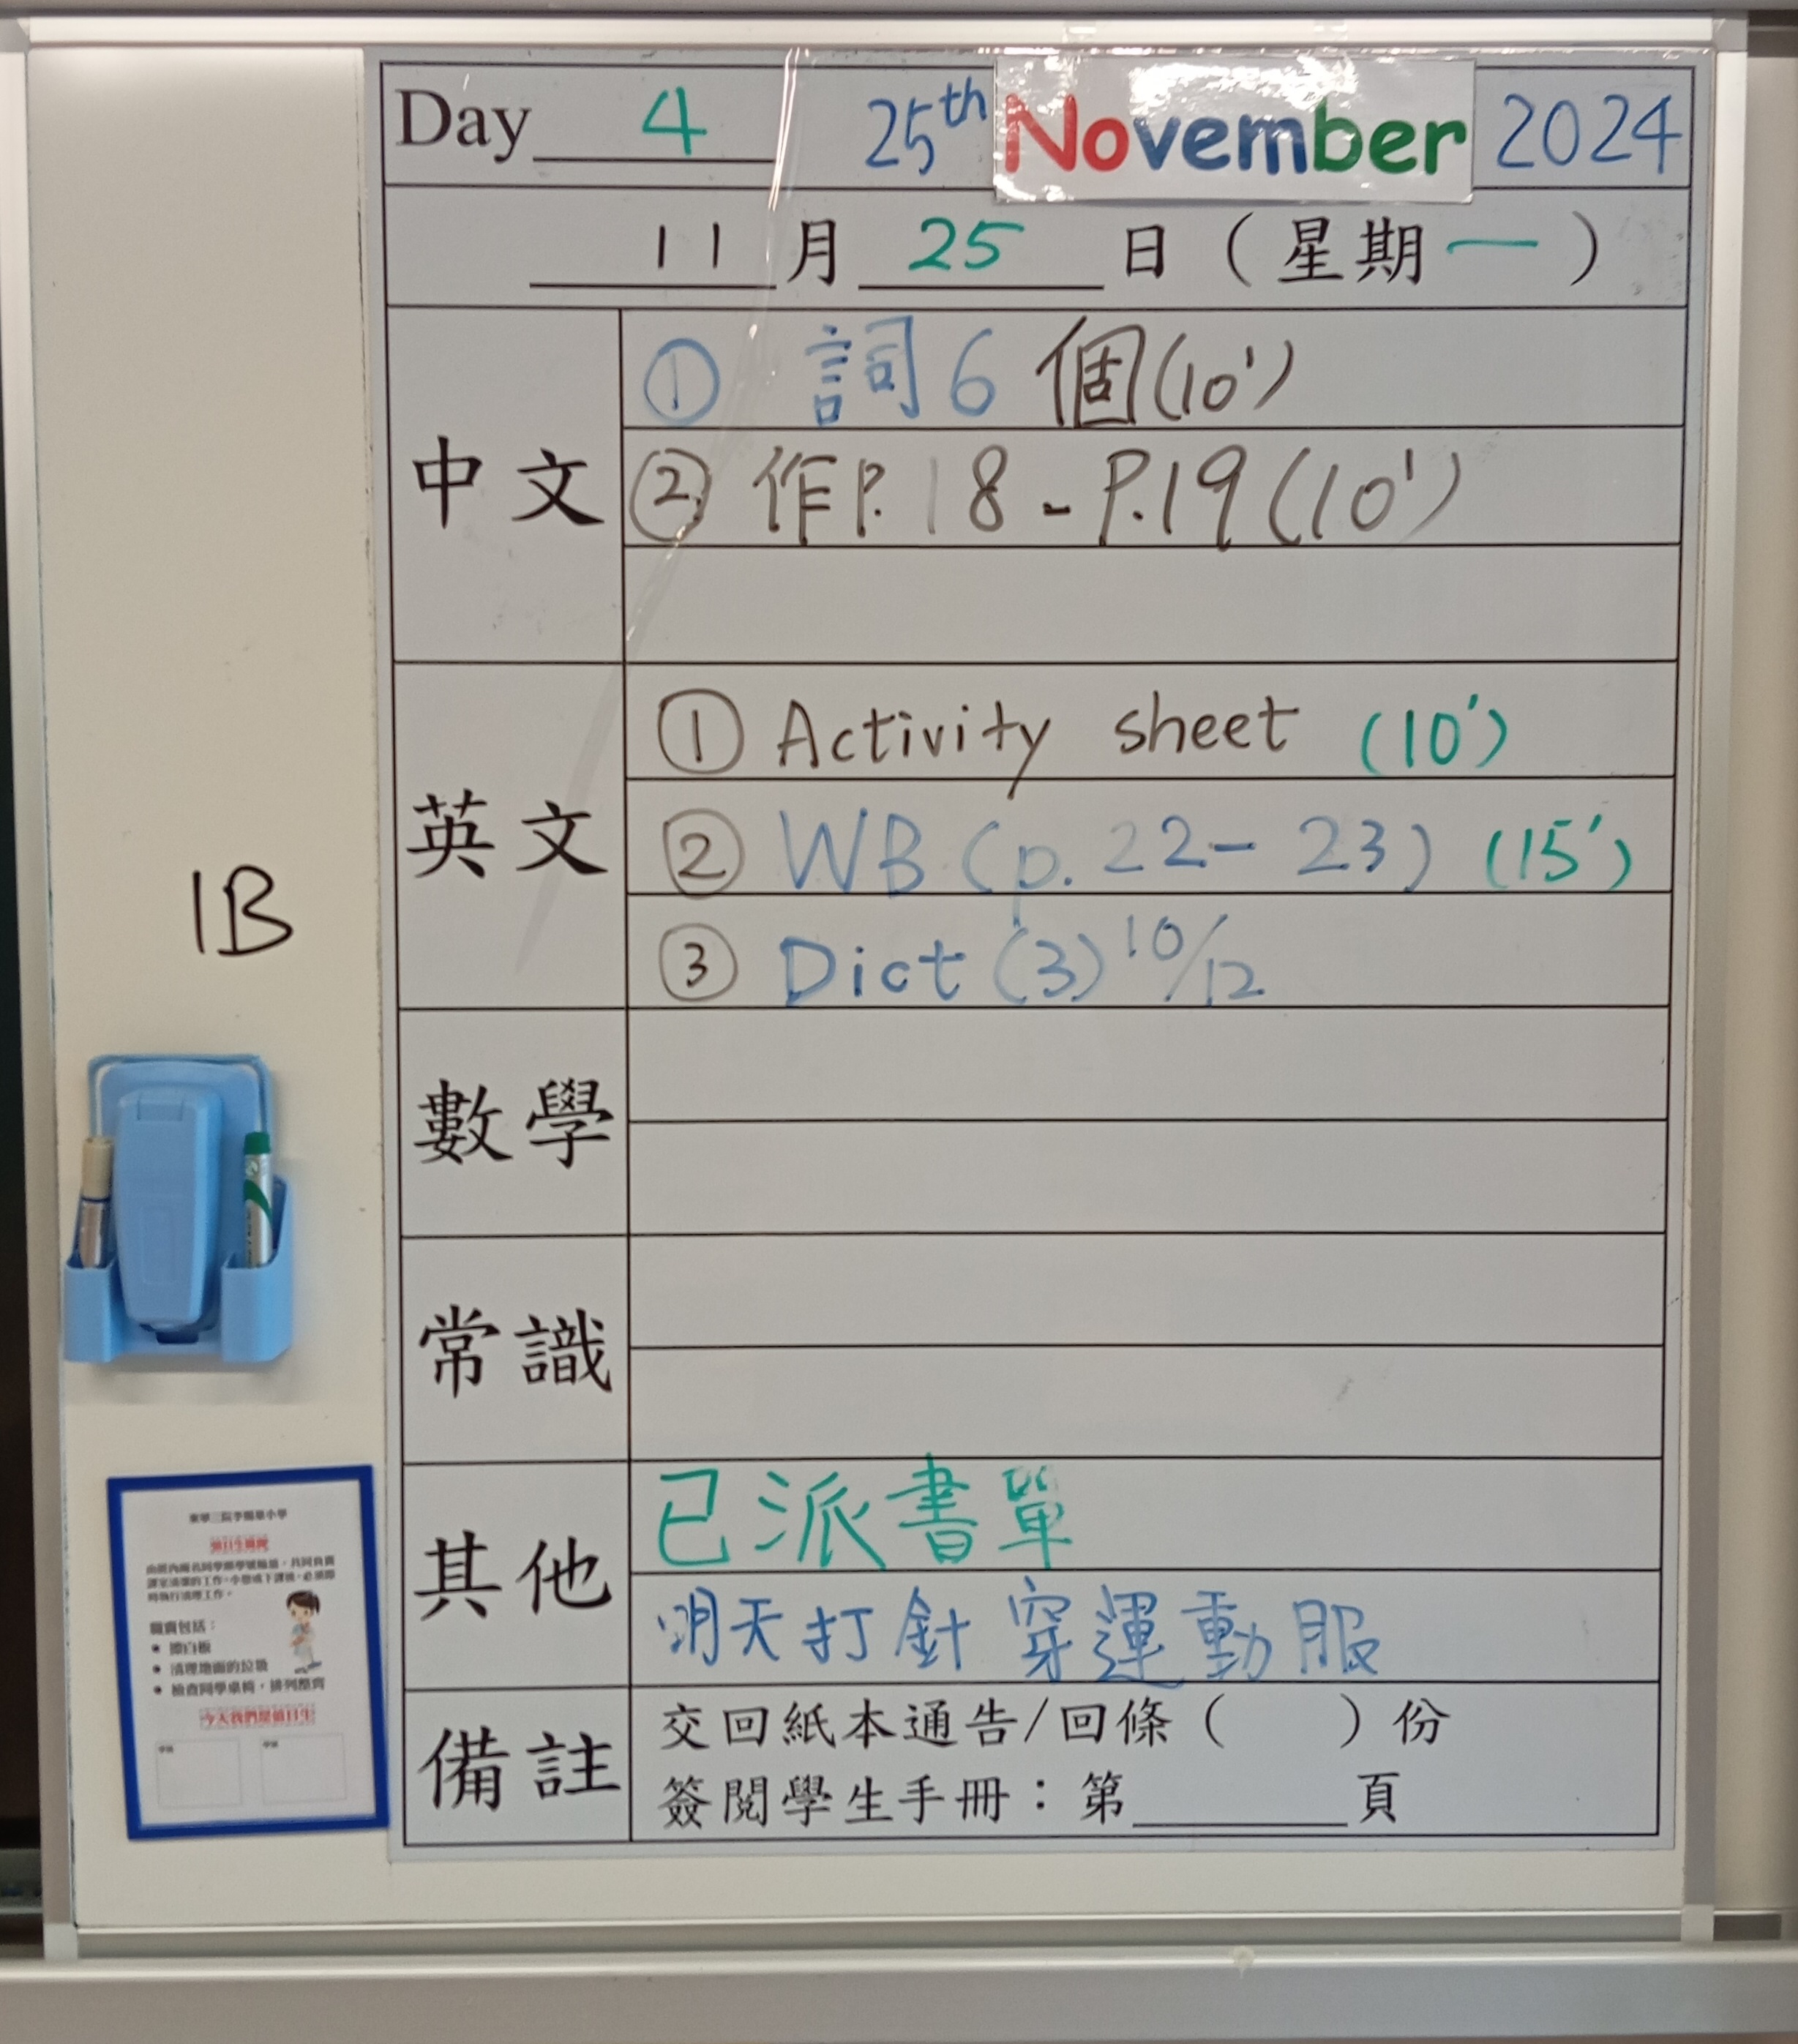 Day 4 25th November 2024
11月25日（星期一）
中文
① 詞6個(10')
② 作P.18-P.19(10')
英文
① Activity sheet (10')
② WB (p.22-23) (15')
③ Dict (3) 10/12
1B
數學
常識
其他
已派書單
明天打針穿運動服
備註
交回紙本通告/回條（　　）份
簽閱學生手冊：第______頁
值日生職責
職責包括：
• 擦白板
• 清理地面的垃圾
• 檢查同學桌椅，排列整齊
今天我們是值日生